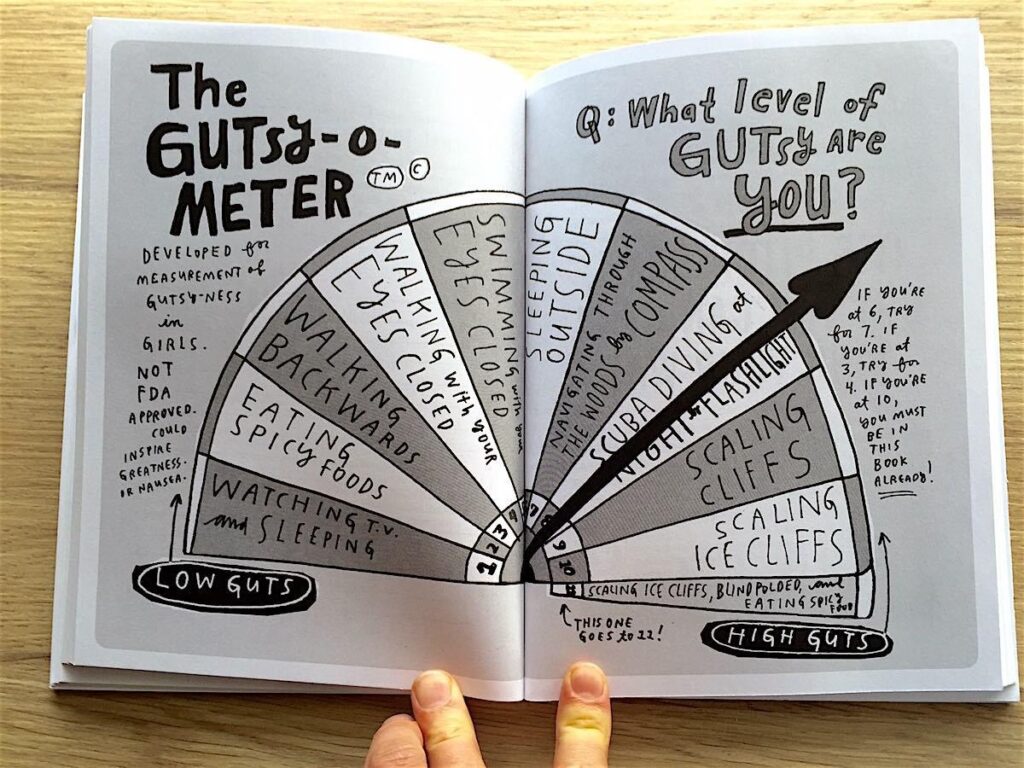 The
GUTsy-o-
METER TM ©
DEVELOPED for
MEASUREMENT of
GUTSY-NESS
in
GIRLS.
NOT
FDA
APPROVED.
COULD
INSPIRE
GREATNESS.
OR NAUSEA.
LOW GUTS
WATCHING T.V.
and SLEEPING
EATING
SPICY FOODS
WALKING
BACKWARDS
WALKING with YOUR
EYES CLOSED
SWIMMING with
EYES CLOSED
1
2
3
4
Q: What level of
GUTsy ARE
YOU?
SLEEPING
OUTSIDE
NAVIGATING THROUGH
THE WOODS by COMPASS
SCUBA DIVING at
NIGHT by FLASHLIGHT
SCALING
CLIFFS
SCALING
ICE CLIFFS
SCALING ICE CLIFFS, BLINDFOLDED, and
EATING SPICY
FOOD
7
8
9
10
11
THIS ONE
GOES to 11!
HIGH GUTS
IF YOU'RE
at 6, TRY
for 7. IF
YOU'RE at
3, TRY for
4. IF YOU'RE
at 10,
YOU MUST
BE IN
THIS
BOOK
ALREADY!